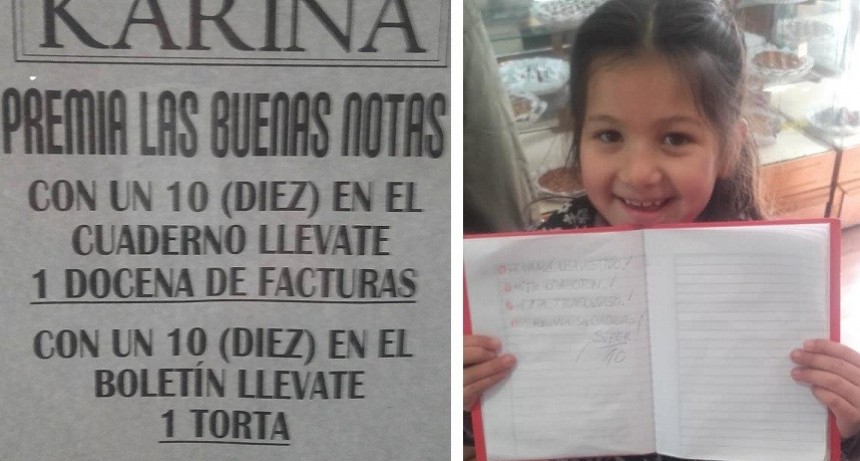 KARINA
PREMIA LAS BUENAS NOTAS
CON UN 10 (DIEZ) EN EL
CUADERNO LLEVATE
1 DOCENA DE FACTURAS
CON UN 10 (DIEZ) EN EL
BOLETÍN LLEVATE
1 TORTA
10